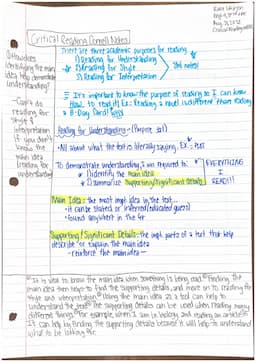 Critical Reading Cornell Notes
There are three academic purposes for reading
1) Reading for Understanding
2) Reading for Style
3) Reading for Interpretation
this notes!
① How does
identifying the main
idea help demonstrate
understanding?
It's important to know the purpose of reading so I can know
How to read it! Ex: Reading a novel is different than reading
a B-Day Card!
- Can't do
reading for
style &
interpretation
if you don't
know the
main idea
(reading for
understanding)
Reading for Understanding - (Purpose set)
- All about what the text is literally saying. Ex:
To demonstrate understanding I am required to:
1) Identify the main idea
2) Summarize Supporting/significant details
EVERYTHING
I
READ!!!
Main Idea: the most impt idea in the text...
- it can be stated or inferred (educated guess)
- found anywhere in the
Supporting/Significant Details: the impt. parts of a text that help
describe or explain the main idea
- reinforce the main idea -
It is vital to know the main idea when something is being read. Finding the
main idea then helps to find the supporting details, and move on to reading for
style and interpretation. Using the main idea as a tool can help to
understand the text. The supporting details can be used when reading many
different things. For example, when I am in biology and reading an article,
it can help by finding the supporting details because it will help to understand
what to be looking for.